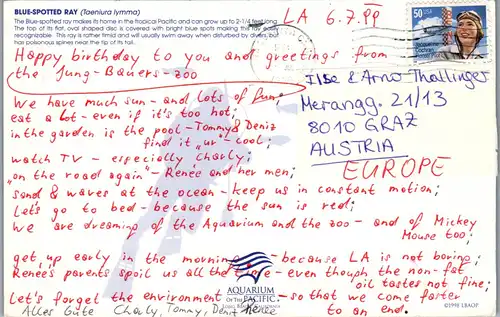 BLUE-SPOTTED RAY (Taeniura lymma)
The Blue-spotted ray makes its home in the tropical Pacific and can grow up to 2-1/4 feet long.
The top of its flat, oval shaped disc is covered with bright blue spots making this ray easily
recognizable. This ray is rather timid and will usually swim away when disturbed by divers, but
has poisonous spines near the tip of its tail.
LA 6.7.99
50 USA
Jacqueline
Cochran
Happy birthday to you and greetings from
the Jung-Bauers-zoo
Ilse & Arno Thallinger
Merangg. 21/13
8010 GRAZ
AUSTRIA
EUROPE
We have much sun - and lots of fun;
eat a lot - even if it's too hot;
in the garden is the pool - Tommy & Deniz
find it "ur"-cool;
watch TV - especially Charly;
"on the road again" - Renee and her men;
sand & waves at the ocean - keep us in constant motion;
Let's go to bed - because the sun is red;
We are dreaming of the Aquarium and the zoo - and of Mickey
Mouse too;
get up early in the morning - because LA is not boring;
Renee's parents spoil us all the time - even though the non-fat
oil tastes not fine;
Let's forget the environment - so that we come faster
to an end
AQUARIUM
OF THE PACIFIC
LONG BEACH, CALIFORNIA
©1998 LBAOP
Alles Gute Charly, Tommy, Deniz, Renée